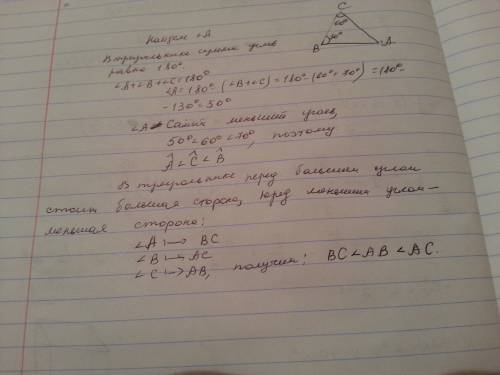 Найдем ∠A
C
60°
B
70°
A
В треугольнике сумма углов
равна 180°.
∠A+∠B+∠C=180°
∠A=180°-(∠B+∠C)=180°-(60°+70°)=180°-
-130°=50°
∠A - Самый меньший угол,
50°<60°<70°, поэтому
Â<Ĉ<B̂
В треугольнике перед большим углом
стоит большая сторона, перед меньшим углом—
меньшая сторона:
∠A ↦ BC
∠B ↦ AC
∠C ↦ AB, получим: BC<AB<AC.